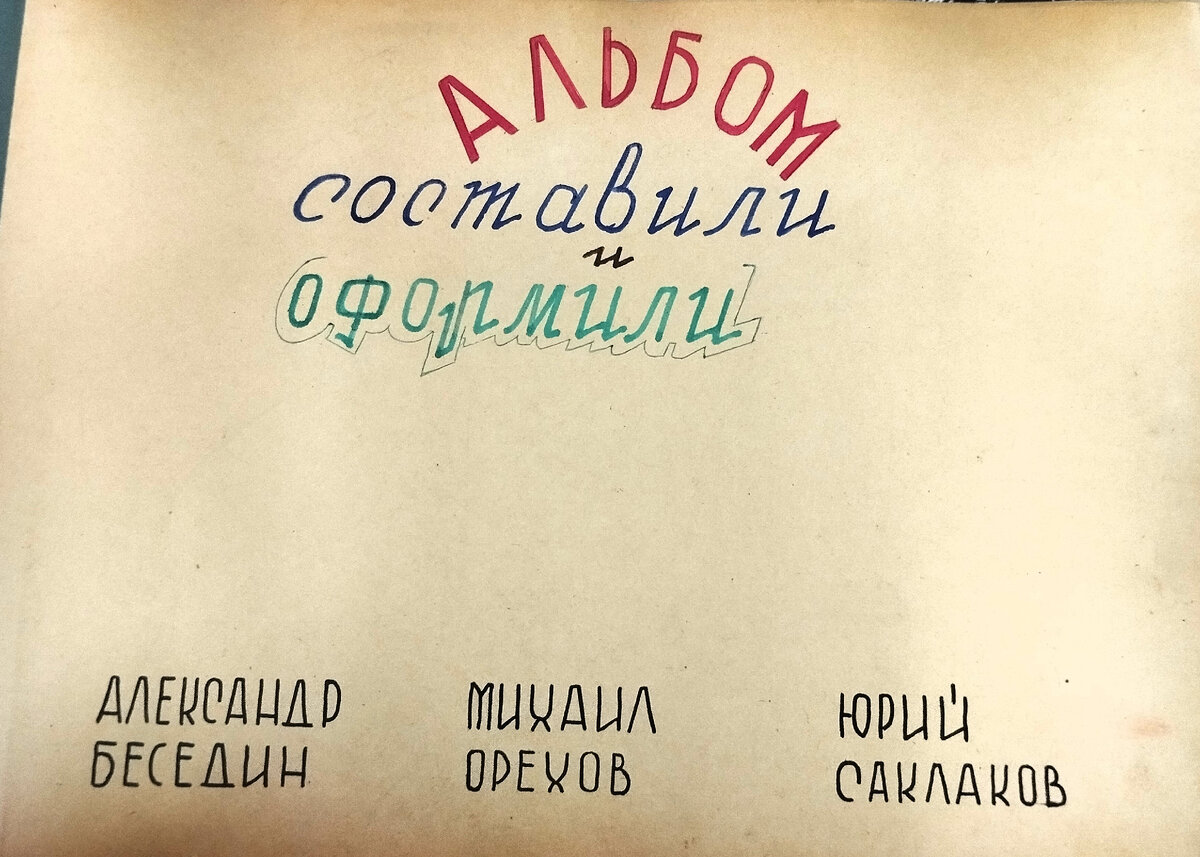 АЛЬБОМ
составили
и
оформили
АЛЕКСАНДР
БЕСЕДИН
МИХАИЛ
ОРЕХОВ
ЮРИЙ
САКЛАКОВ